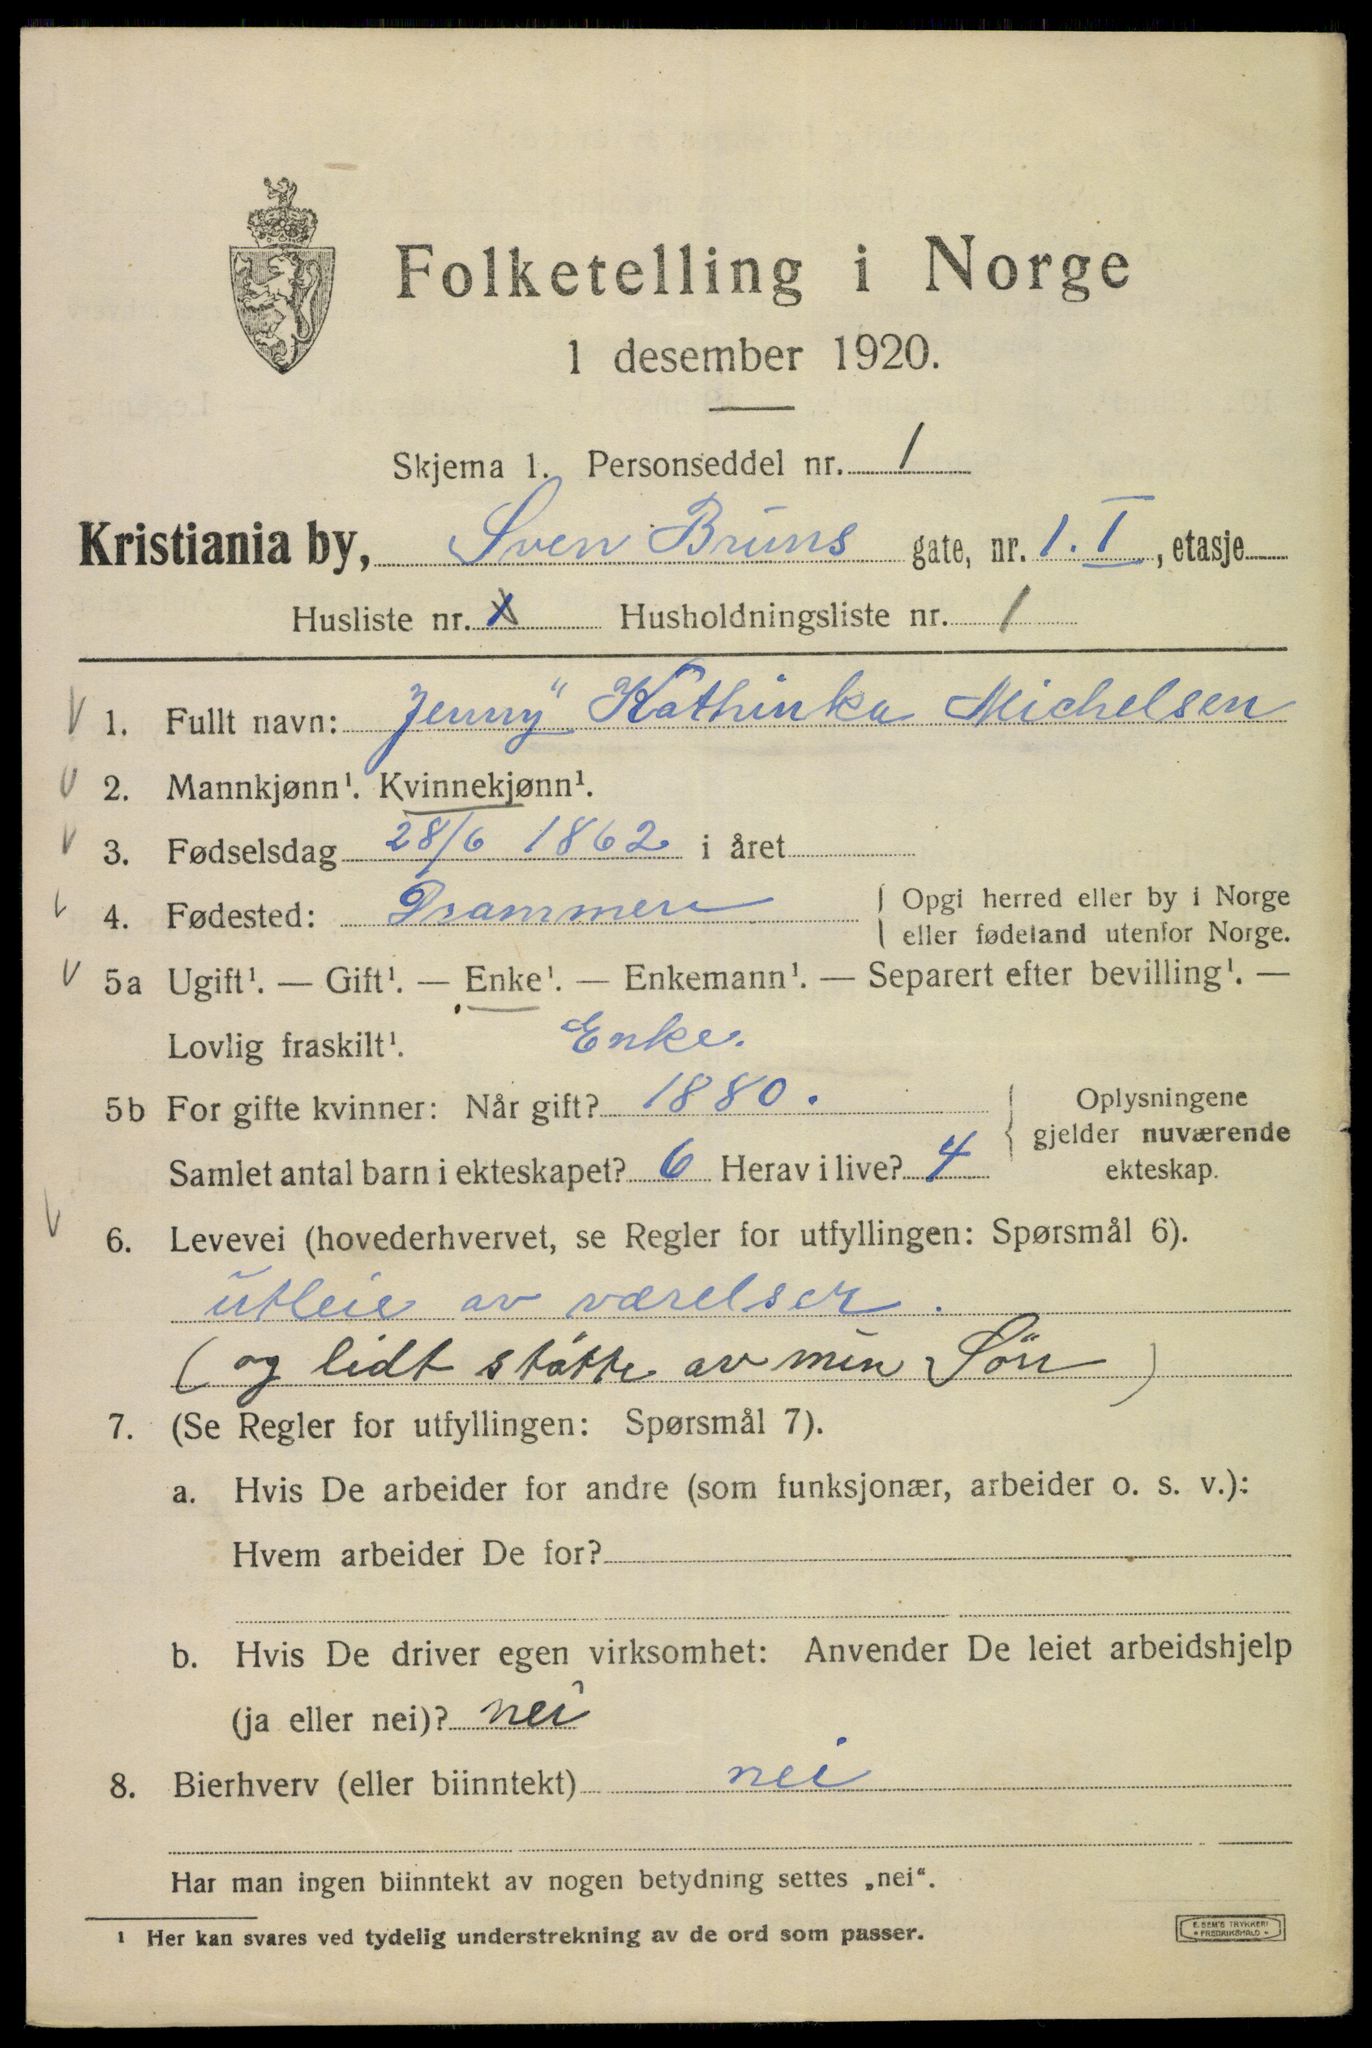 Folketelling i Norge
1 desember 1920.
Skjema 1. Personseddel nr. 1
Kristiania by, Sven Bruns gate, nr. 1. I, etasje
Husliste nr. 1 Husholdningsliste nr. 1
1. Fullt navn: Jenny Kathinka Michelsen
2. Mannkjønn¹. Kvinnekjønn¹.
3. Fødselsdag 28/6 1862 i året
4. Fødested: Drammen { Opgi herred eller by i Norge
eller fødeland utenfor Norge.
5a Ugift¹. — Gift¹. — Enke¹. — Enkemann¹. — Separert efter bevilling¹. —
Lovlig fraskilt¹. Enke.
5b For gifte kvinner: Når gift? 1880. { Oplysningene
gjelder nuværende
Samlet antal barn i ekteskapet? 6 Herav i live? 4 ekteskap.
6. Levevei (hovederhvervet, se Regler for utfyllingen: Spørsmål 6).
utleie av værelser.
(og lidt støtte av min Sön)
7. (Se Regler for utfyllingen: Spørsmål 7).
a. Hvis De arbeider for andre (som funksjonær, arbeider o. s. v.):
Hvem arbeider De for?
b. Hvis De driver egen virksomhet: Anvender De leiet arbeidshjelp
(ja eller nei)? nei
8. Bierhverv (eller biinntekt) nei
Har man ingen biinntekt av nogen betydning settes „nei“.
¹ Her kan svares ved tydelig understrekning av de ord som passer.
E. SEM'S TRYKKERI
FREDRIKSHALD